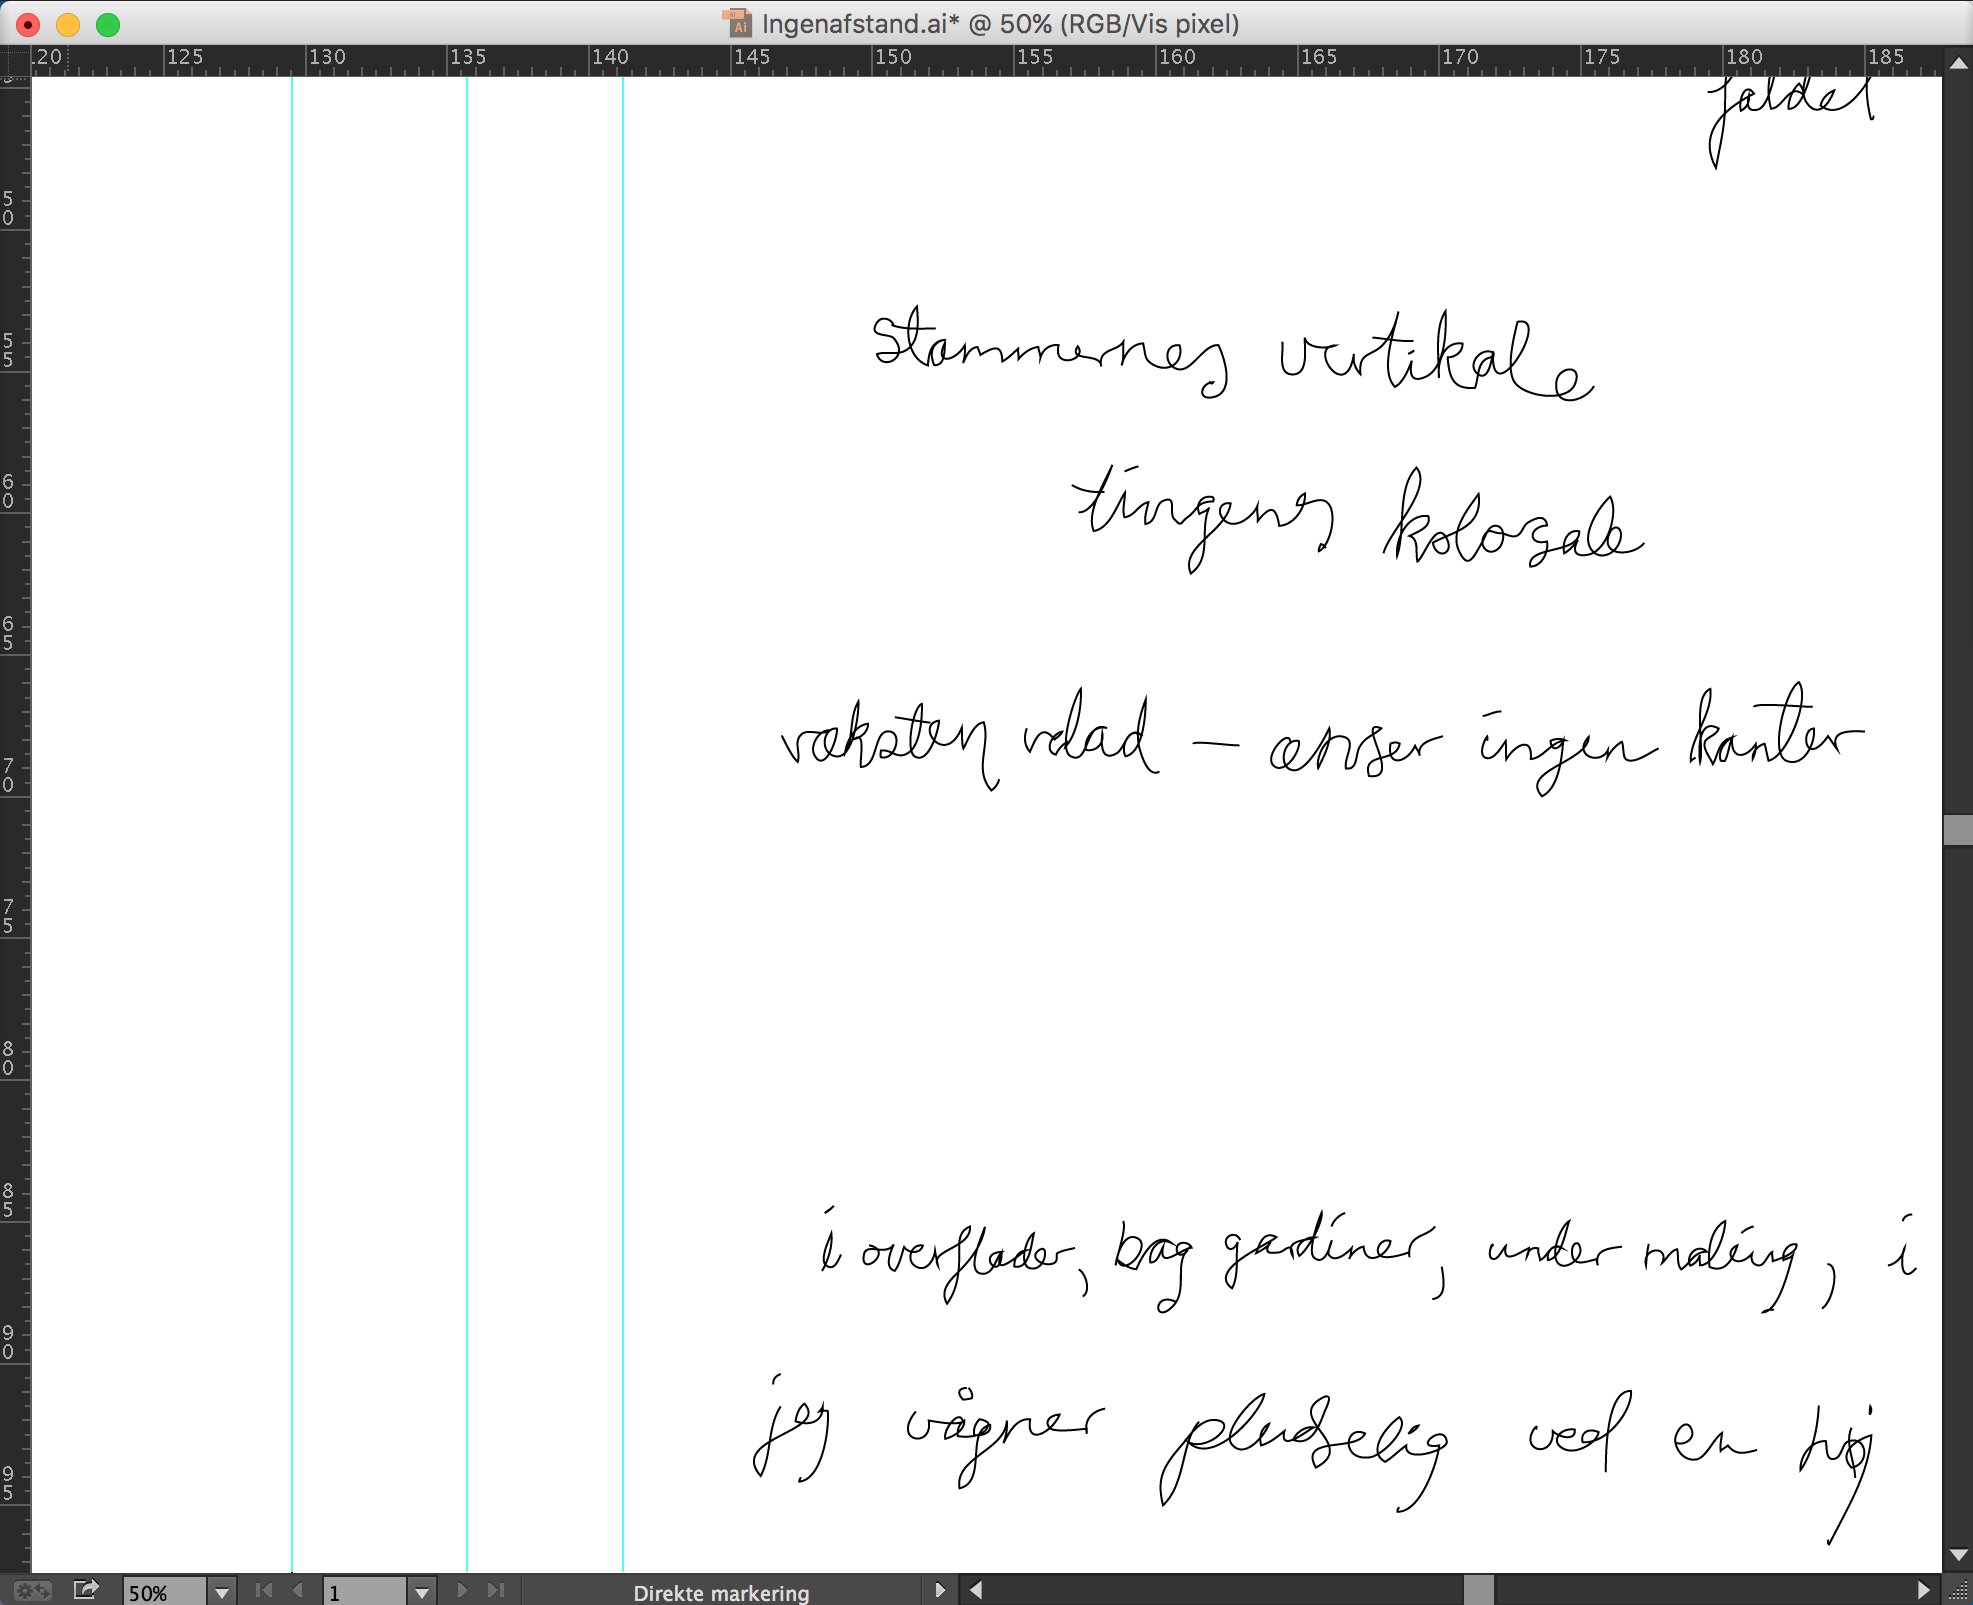 Ingenafstand.ai* @ 50% (RGB/Vis pixel)
120 125 130 135 140 145 150 155 160 165 170 175 180 185
faldet
50
55
stammernes vertikale
60
tingens kolosale
65
væksten velad — ænser ingen kanter
70
75
80
85
i overflader, bag gardiner, under maling, i
90
jeg vågner pludselig ved en høj
95
50% 1 Direkte markering